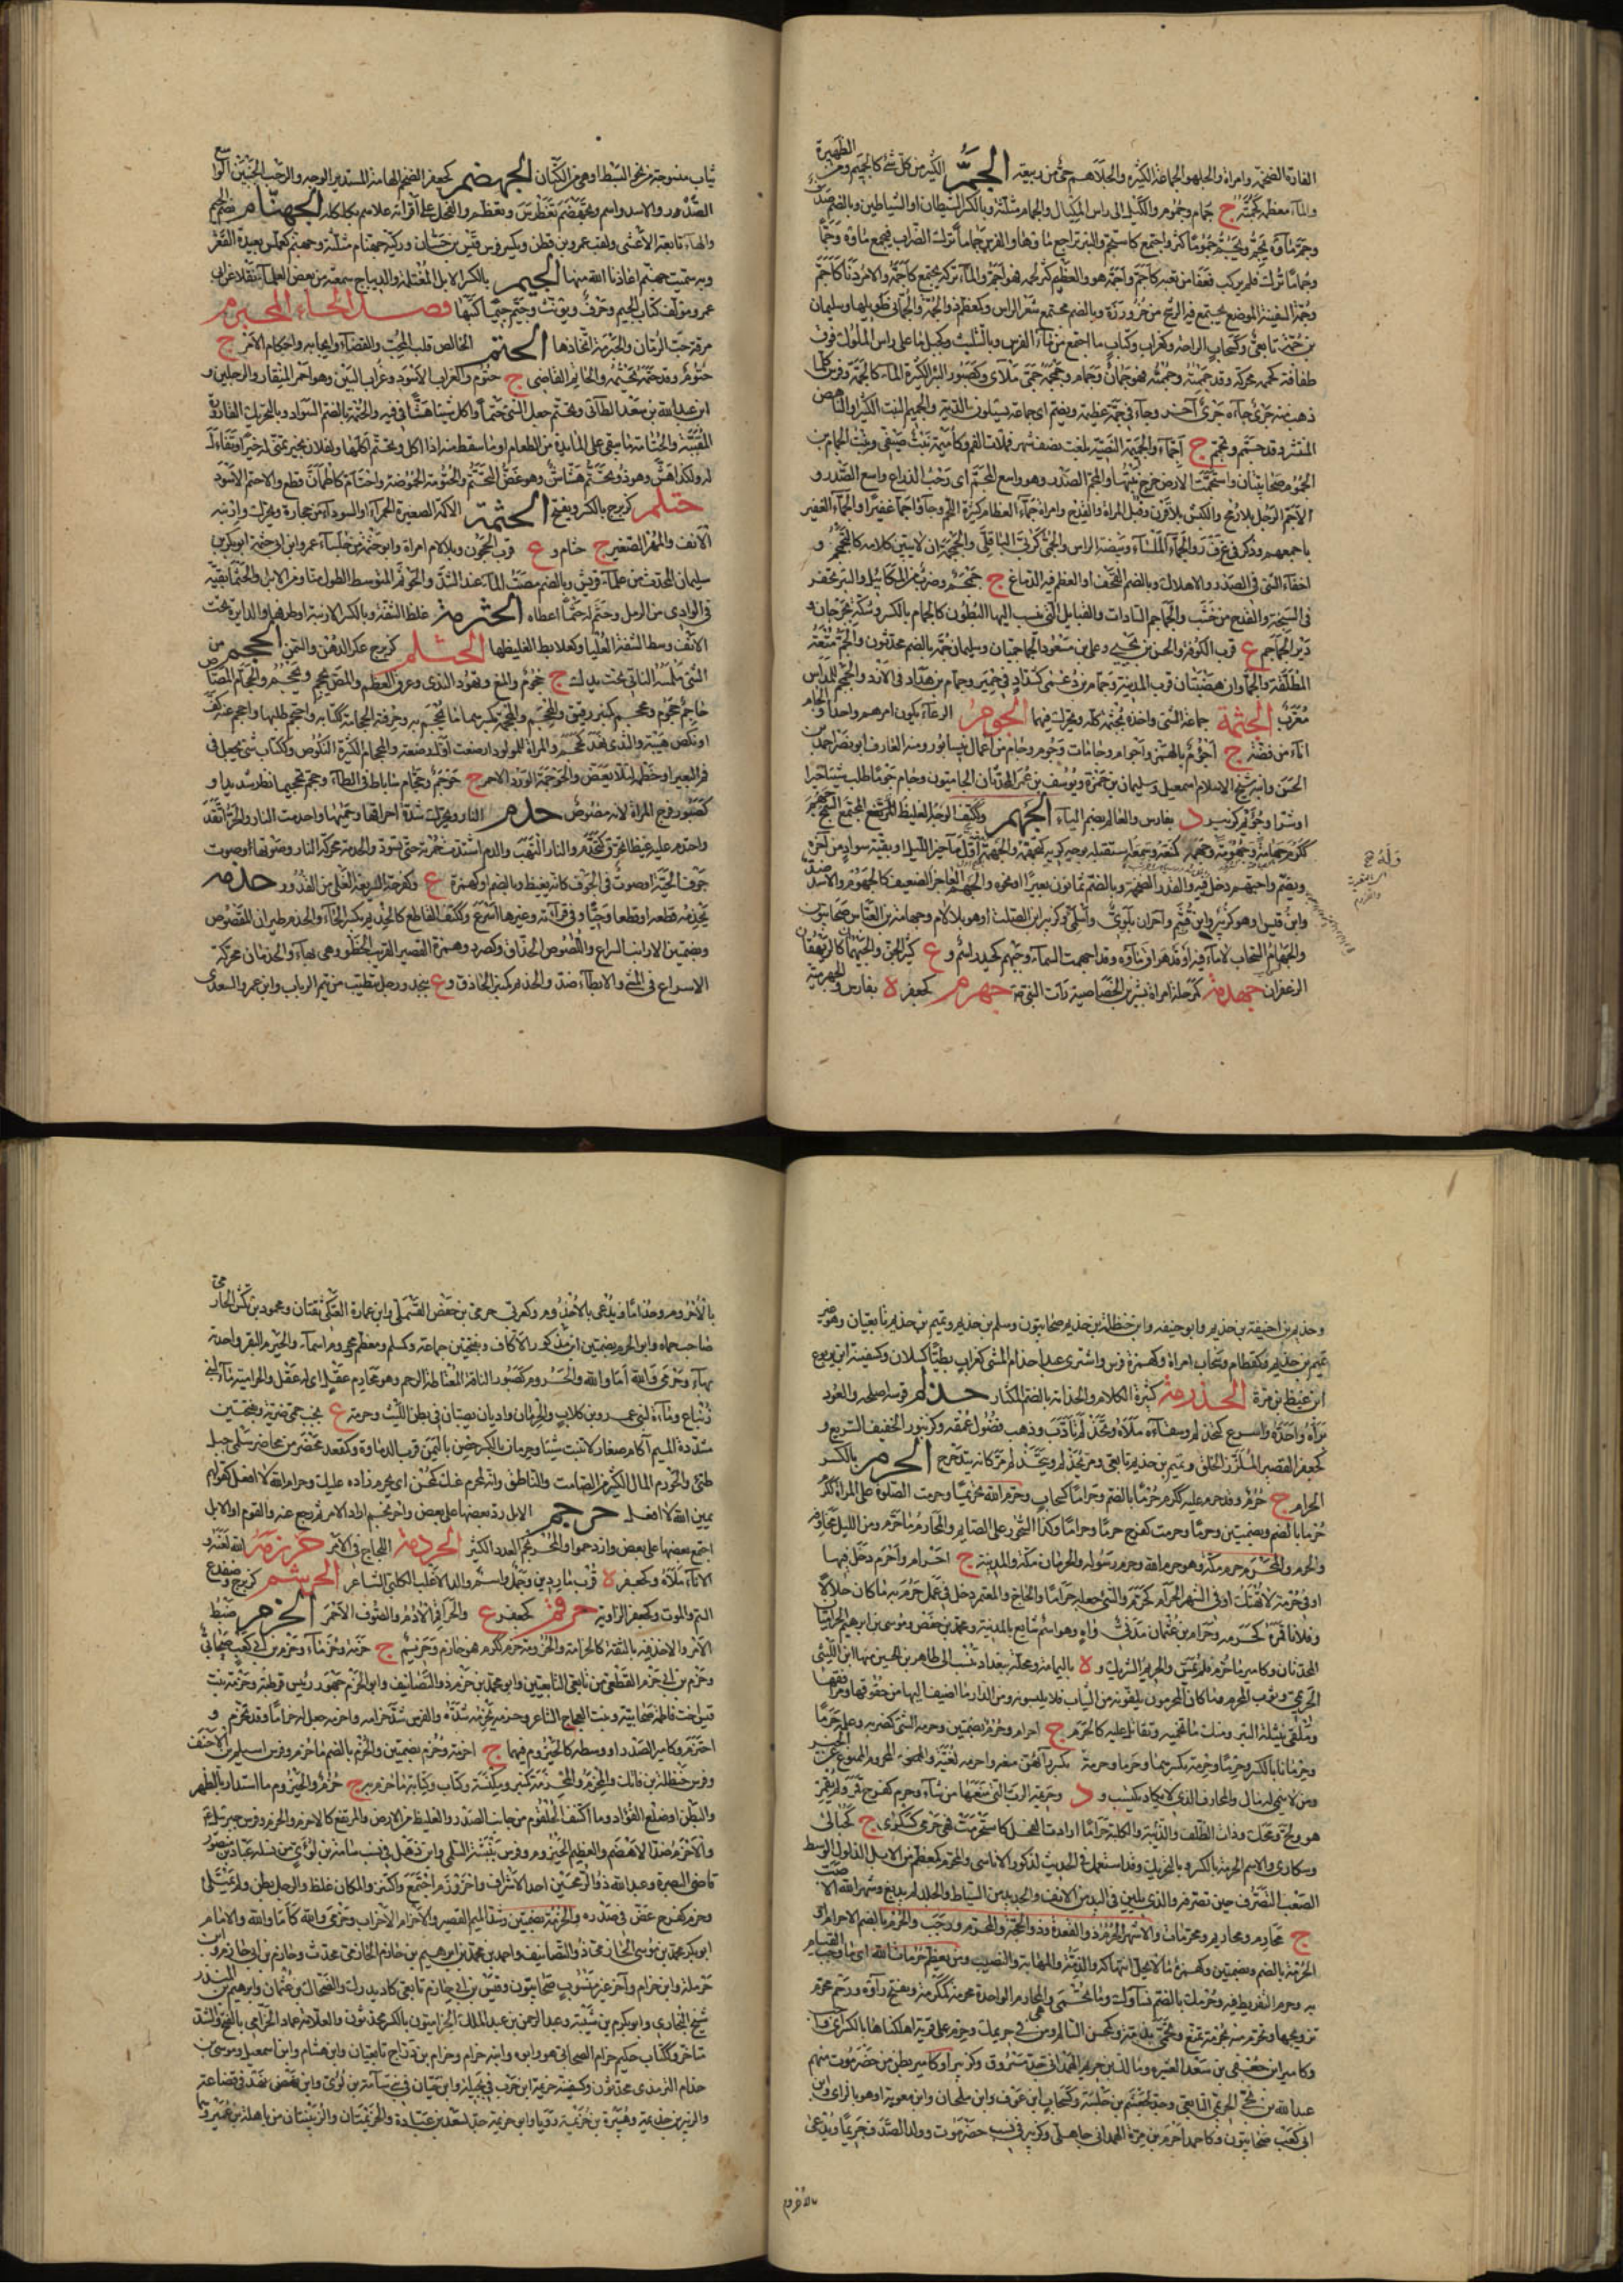 الفارة الضخمة وامراة والجلهو الجماعة الكثيرة والجلاهم حى من ربيعة الجم الكثير من كل شئ كالجميم ومن الظهيرة
والماء معظمه كجمته ج جمام وجموم والكيل الى راس المكيال والجمام مثلثة وبالكسر الشيطان او الشياطين وبالضم صدف
وجم ماؤه يجم ويجم جموما كثر واجتمع كاستجم والبئر تراجع ماؤها والفرس جماما ترك الضراب فجمع ماؤه وجما
وجماما ترك فلم يركب فعفا من تعبه كاجم واجمه هو والعظم كثر لحمه فهو اجم والماء تركه يجتمع كاجمه والامر دنا كاجم
وجمة السفينة الموضع يجتمع فيه الرشح من خروزه وبالضم مجتمع شعر الراس وكمعظم ذو الجمة والجمانى طويلها وسليمان
بن جمة تابعى وكسحاب الراحة وكغراب وكتاب ما اجتمع من ماء الفرس وبالتثليث وكجبل ما على راس المكوك فوق
طفافه كجممه محركة وقد جممته وجممته فهو جمان وجمام وجمجمة جمى ملاى وكصبور البئر الكثيرة الماء كالجمة وفرس كلما
ذهب منه جرى جاءه جرى آخر وجاء فى جمة عظيمة ويضم اى جماعة يسئلون الدية والجميم النبت الكثير او الناهض
المنتشر وقد جمم وتجمم ج اجماء والجميمة النصية بلغت نصف شهر فملات الفم وكامية نبت صيفى وبنت الحمام بن
الجموح صحابيتان واستجمت الارض خرج نبتها والمجم الصدر وهو واسع المجم اى رحب الذراع واسع الصدر و
الاجم الرجل بلا رمح والكبش بلا قرن وقبل المراة والقدح وامراة جماء العظام كثيرة اللحم وجاؤا جما غفيرا والجماء الغفير
باجمعهم وذكر فى غ ف ر والجماء الملساء وبيضة الراس والجمى كربى الباقلى والجمجمة ان لا يبين كلامه كالتجمجم و
اخفاء الشئ فى الصدر والاهلاك وبالضم القحف او العظم فيه الدماغ ج جمجم وضرب من المكاييل والبئر تحفر
فى السبخة والقدح من خشب والجماجم السادات والقبايل التى تنسب اليها البطون كالجمام بالكسر وسكة بجرجان و
دير الجماجم ع قرب الكوفة والحسن بن يحيى وعلى بن مسعود الجماجميان وسليمان بن جمة بالضم محدثون والجم متعة
المطلقة والجماوان هضبتان قرب المدينة وجمام بن دغمى كشداد فى حمير وحمام بن هداد فى الازد والجمجم للمداس
معرب الجثمة جماعة الشئ واخذه بجثمته كله ويحرك فيهما الجوم الرعاء يكون امرهم واحدا والجام
اناء من فضة ج اجؤم بالهمز واجوام وجامات وجوم وجام من اعمال نيسابور ومنه العارف ابو نصر احمد بن
الحسن وابنه شيخ الاسلام اسمعيل وسليمان بن حمزة ويوسف بن عمر المحدثان الجاميون وجام جوما طلب شيئا خيرا
او شرا وجويم كزبير د بفارس والعامة بضم الياء الجهم وككتف الوجه الغليظ المجتمع السمج جهم
ككرم جهامة وجهومة وجهمه كمنعه وسمعه استقبله بوجه كريه كتجهمه والجهمة اول مآخير الليل او بقية سواد من آخره
ويضم واجتهم دخل فيه والقدر الضخمة وبالضم ثمانون بعيرا او نحوه والجهم العاجز الضعيف كالجهوم والاسد ضد
وابن قيس او هو كزبير وابن قثم وآخران بلوى واسلمى وكزبير ابن الصلت او هو بلا لام وجهامة بن العباس صحابيون
والجهام السحاب لا ماء فيه او قد هراق ماؤه وقد اجهمت السماء وجيهم كحيدر اسم و ع كثير الجن والجيهمان كالريهقان
الزعفران جهدمة كمرحلة امراة بشير بن الخصاصية رات النبى صم جهرم كجعفر ه بفارس والجهرمية
ثياب منسوجة من نحو البسط او هى من الكتان الجهضم كجعفر الضخم الهامة المستدير الوجه والرحب الجنبين الواسع
الصدر والاسد واسم وتجهضم تغطرس وتعظم والفحل على اقرانه علاهم بكلكله الجهنام بضم الجيم
والهاء تابعة الاعشى ولقب عمرو بن قطن ويكسر وفرس قيس بن حسان وركية جهنام مثلثة وجهنم كعملس بعيدة القعر
وبه سميت جهنم اعاذنا الله منها الجيم بالكسر الابل المغتلمة والديباج سمعته من بعض العلماء نقلا عن ابى
عمرو مؤلف كتاب الجيم وحرف ويؤنث وجيم جيما كتبها فصل الحاء المحبرم
مرقة حب الرمان والحبرمة اتخاذها الحتم الخالص قلب المحت والقضاء وايجابه واحكام الامر ج
حتوم وقد حتمه يحتمه والحاتم القاضى ج حتوم والغراب الاسود وغراب البين وهو احمر المنقار والرجلين و
ابن عبد الله بن سعد الطائى وتحتم جعل الشئ حتما واكل شيئا هشا فى فيه والحتمة بالضم السواد وبالتحريك القارورة
المفتتة والحتامة ما يبقى على المايدة من الطعام او ما سقط منه اذا اكل وتحتم اكلها ولفلان بخير تمنى له خيرا وتفاءل
له ولكذا هش وهو ذو تحتم هشاش وهو غض المتحتم والحتومة الحموضة واحتام كاطمان قطع والاحتم الاسود
حتلم كزبرج بالكسر وبفتح الحثمة الاكمة الصغيرة الحمراء او السوداء من حجارة ويحرك وارنبة
الانف والمهر الصغير ج حثام و ع قرب الحجون وبلا لام امراة وابن حثمة من جلساء عمر وابن ابى حثمة ابو بكر بن
سليمان المحدث من علماء قريش وبالضم مصب الماء عند السد والحوثم المتوسط الطول منا ومن الابل والحثما بقية
فى الوادى من الرمل وحثم له حثما اعطاه الحثرمة غلظ الشفة وبالكسر الارنبة او طرفها والدايرة تحت
الانف وسط الشفة العليا وكعلابط الغليظها الحثلم كزبرج عكر الدهن والسمن الحجم من
الشئ ملمسه الناتى تحت يدك ج حجوم والمنع ونهود الثدى وعرق العظم والمص يحجم ويحجم والحجام المصاص
حاجم حجوم ومحجم كمنبر رفيق والمحجم والمحجمة بكسرهما ما يحجم به وحرفته الحجامة ككتابة واحتجم طلبها واحجم عنه كف
او نكص هيبة والثدى نهد كحجم والمراة للمولود ارضعته اول رضعة والحجام الكثير النكوص وككتاب شئ يجعل فى
فم البعير او خطمه لئلا يعض والحوجمة الورد الاحمر ج حوجم وحجام ساباط فى الطاء وحجم تحجيما نظر شديدا و
كصبور فرج المراة لانه مصوص حدم النار ويحرك شدة احتراقها وحميها واحتدمت النار والحر اتقد
واحتدم عليه غيظا تحرق كتحدم والنار التهب والدم اشتدت حمرته حتى تسود والحدمة محركة النار وصوتها او صوت
جوف الحية او صوت فى الجوف كانه تغيظ وبالضم او كهمزة ع وكفرحة السريعة الغلى من القدور حذمه
يحذمه قطعه او قطعا وحيا وفى قراءته وغيرها اسرع وككتف القاطع كالحذيم بكسر الحاء والحذم طيران المقصوص
وبضمتين الارانب السراع واللصوص الحذاق وكصرد وهمزة القصير القريب الخطو وهى بهاء والحذمان محركة
الاسراع فى المشى والابطاء ضد والحذيم كمنبر الحاذق و ع بنجد ورجل متطبب من تيم الرباب وابن عمرو السعدى
وحذيم بن حنيفة بن حذيم وابو حنيفة وابن حنظلة بن حذيم صحابيون وسلم بن حذيم وتميم بن حذيم تابعيان وهو غير
تميم بن حذلم وكقطام وسحاب امراة وكهمزة فرس واشترى عبدا حذام المشى كغراب بطيئا كسلان وكسفينة ابن يربوع
ابن غيظ بن مرة الحذرمة كثرة الكلام والحذارم بالضم المكثار حذلم فرسه اصلحه والعود
براه واحده واسرع كتحذلم وسقاءه ملاه وتحذلم تادب وذهب فضول حمقه وكزنبور الخفيف السريع و
كجعفر القصير الملزز الخلق وتميم بن حذلم تابعى ومر يحذلم ويتحذلم مر كانه يتدحرج الحرم بالكسر
الحرام ج حرم وقد حرم عليه ككرم حرما بالضم وحراما كسحاب وحرمه الله تحريما وحرمت الصلوة على المراة ككرم
حرما بالضم وبضمتين وحرما وحرمت كفرح حرما وحراما وكذا السحور على الصايم والمحارم ما حرم ومن الليل مخاوفه
والحرم والمحرم حرم مكة وهو حرم الله وحرم رسوله والحرمان مكة والمدينة ج احرام واحرم دخل فيها
او فى حرمة لا تهتك او فى الشهر الحرام كحرم والشئ جعله حراما والحاج والمعتمر دخل فى عمل حرم به ما كان حلالا
وفلانا قمره كحرمه وحرام بن عثمان مدنى واه وهو اسم شايع بالمدينة ومحمد بن حفص وموسى بن ابرهيم الحراميان
المحدثان وكامير ما حرم فلم يمس والحريم الشريك و ه باليمامة ومحلة ببغداد تنسب الى طاهر بن الحسين منها ابن اللتى
الحريمى وثوب المحرم وما كان المحرمون يلقونه من الثياب فلا يلبسونه ومن الدار ما اضيف اليها من حقوقها ومرافقها
وملقى نبيثة البئر ومنك ما تحميه وتقاتل عليه كالحرم ج احرام وحرم بضمتين وحرمه الشئ كضربه وعلمه حريما
وحرمانا بالكسر وحرما وحرمة بكسرهما وحرما وحرمة بكسر رائهن منعه واحرمه لغية والمحروم الممنوع عن الخير
ومن لا ينمى له مال والمحارف الذى لا يكاد يكتسب و د وحريمة الرب التى منعها من شاء وحرم كفرح قمر ولم يقمر
هو ولج ومحك وذات الظلف والذئبة والكلبة حراما ارادت الفحل كاستحرمت فهى حرمى كسكرى ج كحبالى
وسكارى والاسم الحرمة بالكسر وبالتحريك وقد استعمل فى الحديث لذكور الاناسى والمحرم كمعظم من الابل الذلول الوسط
الصعب التصرف حين تصرفه والذى يلين فى اليد من الانف والجديد من السياط والجلد لم يدبغ وشهر الله الاصب
ج محارم ومحاريم ومحرمات والاشهر الحرم ذو القعدة وذو الحجة والمحرم ورجب والحرم بالضم الاحرام و
الحرمة بالضم وبضمتين وكهمزة ما لا يحل انتهاكه والذمة والمهابة والنصيب ومن يعظم حرمات الله اى ما وجب القيام
به وحرم التفريط فيه وحرمك بالضم نساؤك وما تحمى وهى المحارم الواحدة محرمة كمكرمة وتفتح راؤه ورحم محرم
تزوجها وتحرم منه بحرمة تمنع وتحمى بذمة وكمحسن المسالم ومن فى حريمك وحرم على قرية اهلكناها بالكسر اى واجب
وكامير ابن جعفى بن سعد العشيرة ومالك بن حريم الهمدانى جد مسروق وكزبير او كامير بطن من حضرموت منهم
عبد الله بن نجى الحريمى التابعى وجد لجعشم بن خليبة وكسحاب ابن عوف وابن ملحان وابن معوية او هو بالزاى وابن
ابى كعب صحابيون وكاحمد احرم بن هبرة الهمدانى جاهلى وكزبير فى نسب حضرموت وولد الصدف حريما ويدعى
بالاخروم
بالاخروم وجذاما ويدعى بالاجذوم وكعربى حرمى بن حفص القسملى وابن عمارة العتكى ثقتان ومحمود بن تكش الحارمى
صاحب حماه وابو الحرم بضمتين ابن مذكور الاكاف وبفتحتين جماعة وكمسلم ومعظم ومحروم اسماء والحيرم البقر واحدته
بهاء وحرمى والله اما والله والحروم كصبور الناقة المعتاطة الرحم وهو بحارم عقل اى له عقل والحرامية ماء لبنى
زنباع وماءة لبنى عمرو بن كلاب والحرمان واديان يصبان فى بطن الليث وحرمة ع بجنب حمى ضرية وبفتحتين
مشددة الميم آكام صغار لا تنبت شيئا وحرمان بالكسر حصن باليمن قرب الدملوة وكمقعد محضر من محاضر سلمى جبل
طئ والحورم المال الكثير من الصامت والناطق وانه لمحرم عنك كمحسن اى يحرم اذاه عليك وحرام الله لا افعل كقولهم
يمين الله لا افعل حرجم الابل رد بعضها على بعض واحرنجم اراد الامر ثم رجع عنه والقوم او الابل
اجتمع بعضها على بعض وازدحموا والمحرنجم العدد الكثير الحردمة اللجاج فى الامر حرزمه الله لعنه و
الاناء ملاه وكجعفر ه قرب ماردين وجمل واسم والد الاغلب الكلبى الشاعر الحرسم كزبرج وضفدع
السم والموت وكجعفر الزاوية حرقم كجعفر ع والحراقم الادم والصوف الاحمر الحزم ضبط
الامر والاخذ فيه بالثقة كالحزامة والحزومة حزم ككرم فهو حازم وحزيم ج حزمة وحزماء وحزم بن ابى كعب صحابى
وحزم بن ابى حزم القطعى من تابعى التابعين وابو محمد بن حزم ذو التصانيف وابو الحزم جهور رئيس قرطبة وحزمة بنت
قيس اخت فاطمة صحابية وبنت العجاج الشاعر وحزمه يحزمه شده والفرس شد حزامه واحزمه جعل له حزاما وقد تحزم و
احتزم وكامير الصدر او وسطه كالحيزوم فيهما ج احزمة وحزم بضمتين والحزم بالضم ما حزم وفرس اسيلم بن الاحنف
وفرس حنظلة بن فاتك والمحزم والمحزمة كمنبر ومكنسة وكتاب وكتابة ما حزم به ج حزم والحيزوم ما استدار بالظهر
والبطن او ضلع الفؤاد وما اكتنف الحلقوم من جانب الصدر والغليظ من الارض والمرتفع كالاحزم والحزم وفرس جبريل
والاحزم ضد الاهضم والعظيم الحيزوم وفرس نبيشة السلمى وابن ذهل فى نسب سامة بن لؤى من نسله عباد بن منصور
قاضى البصرة وعبد الله ذو الرمحين احد الاشراف واحزوزم اجتمع واكتنز والمكان غلظ والرجل بطن ولم يمتلئ
وحزم كفرح غص فى صدره والحزمة بضمتين وشد الميم القصير والاحزام الاحزاب وحزمى والله كاما والله والامام
ابو بكر محمد بن موسى الحازمى ذو التصانيف واحمد بن محمد بن ابرهيم بن حازم الحازمى محدث وحازم بن ابى حازم وابن
حرملة وابن حرام وآخر غير منسوب صحابيون وقيس بن ابى حازم تابعى كاد يدرك والضحاك بن عثمان وابرهيم بن المنذر
شيخ البخارى وابو بكر بن شيبة وعبد الرحمن بن عبد الملك الحزاميون بالكسر محدثون والعلامة عماد الحزامى بالفتح والشد
متاخر وككتاب حكيم بن حزام الصحابى هو وابوه وابنه حزام وحزام بن دراج تابعيان وابن هشام وابن اسمعيل وموسى بن
حزام الترمذى محدثون وكسفينة حزيمة ابن حرب فى بجيلة وابن حيان فى بنى سامة بن لؤى وابن نهد فى قضاعة
والزبير بن حزيمة وهبيرة بن حزيمة رويا وابو حزيمة جد لسعد بن عبادة والحزيمتان والزبينتان من باهلة بن عمرو وهما